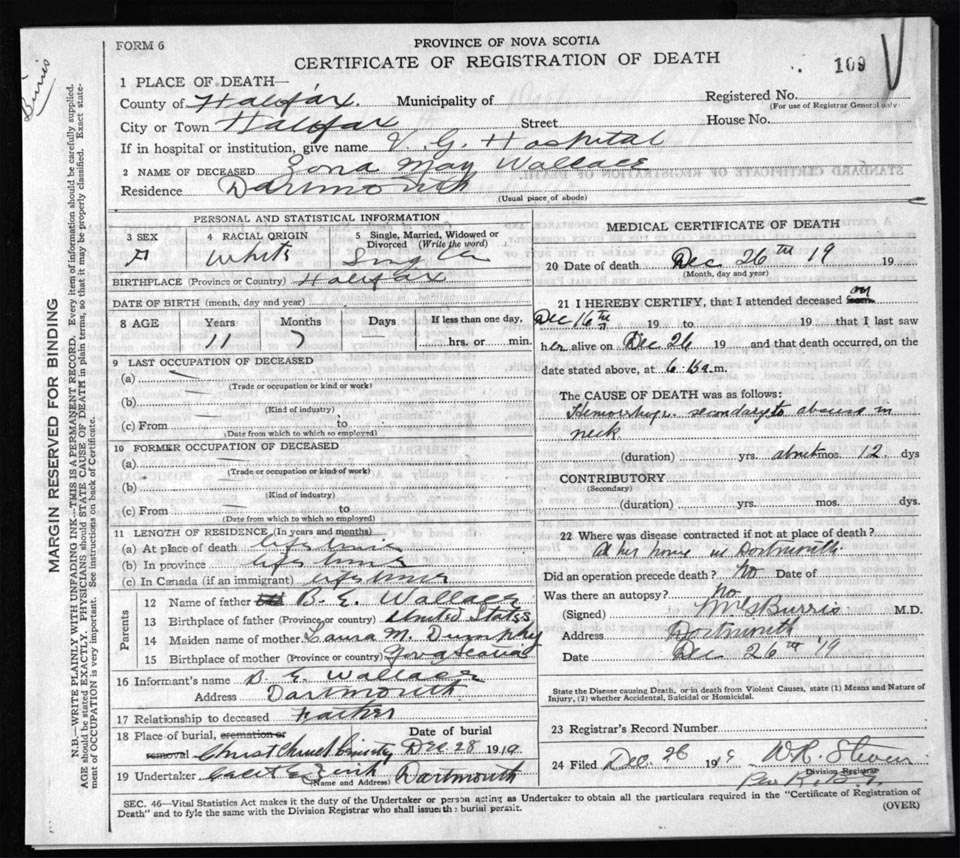 Burris
FORM 6
PROVINCE OF NOVA SCOTIA
CERTIFICATE OF REGISTRATION OF DEATH
109
1 PLACE OF DEATH—
County of Halifax. Municipality of
Registered No.
(For use of Registrar General only
City or Town Halifax Street House No.
If in hospital or institution, give name V. G. Hospital
2 NAME OF DECEASED Zona May Wallace
Residence Dartmouth
(Usual place of abode)
PERSONAL AND STATISTICAL INFORMATION
3 SEX
F
4 RACIAL ORIGIN
White
5 Single, Married, Widowed or Divorced (Write the word)
Single
BIRTHPLACE (Province or Country) Halifax
DATE OF BIRTH (month, day and year)
8 AGE Years Months Days If less than one day,
11 7 — hrs. or min.
9 LAST OCCUPATION OF DECEASED
(a)
(Trade or occupation or kind or work)
(b)
(Kind of industry)
(c) From to
(Date from which to which so employed)
10 FORMER OCCUPATION OF DECEASED
(a)
(Trade or occupation or kind of work)
(b)
(Kind of industry)
(c) From to
(Date from which to which so employed)
11 LENGTH OF RESIDENCE (In years and months)
(a) At place of death life time
(b) In province life time
(c) In Canada (if an immigrant) life time
Parents
12 Name of father B. E. Wallace
13 Birthplace of father (Province or country) United States
14 Maiden name of mother Laura M. Dumphy
15 Birthplace of mother (Province or country) Nova Scotia
16 Informant's name B E. Wallace
Address Dartmouth
17 Relationship to deceased Father
18 Place of burial, cremation or removal Date of burial
Christ Church Cemetery Dec 28 1919
19 Undertaker Zink Dartmouth
(Name and Address)
MEDICAL CERTIFICATE OF DEATH
20 Date of death Dec 26th 19 19
(Month, day and year)
21 I HEREBY CERTIFY, that I attended deceased from on
Dec 16th 19 to 19 that I last saw
her alive on Dec 26 19 and that death occurred, on the
date stated above, at 6 a.m.
The CAUSE OF DEATH was as follows:
Hemorrhage secondary to abscess in
neck
(duration) yrs. about mos. 12 dys
CONTRIBUTORY
(Secondary)
(duration) yrs. mos. dys.
22 Where was disease contracted if not at place of death?
At her home in Dartmouth.
Did an operation precede death? No Date of
Was there an autopsy? No
(Signed) Burris M.D.
Address Dartmouth
Date Dec 26th '19
State the Disease causing Death, or in death from Violent Causes, state (1) Means and Nature of
Injury, (2) whether Accidental, Suicidal or Homicidal.
23 Registrar's Record Number
24 Filed Dec. 26 19
Division Registrar
SEC. 46—Vital Statistics Act makes it the duty of the Undertaker or person acting as Undertaker to obtain all the particulars required in the "Certificate of Registration of
Death" and to fyle the same with the Division Registrar who shall issue the burial permit.
(OVER)
MARGIN RESERVED FOR BINDING
N.B.—WRITE PLAINLY WITH UNFADING INK—THIS IS A PERMANENT RECORD. Every item of information should be carefully supplied.
AGE should be stated EXACTLY. PHYSICIANS should STATE CAUSE OF DEATH in plain terms, so that it may be properly classified. Exact state-
ment of OCCUPATION is very important. See instructions on back of Certificate.